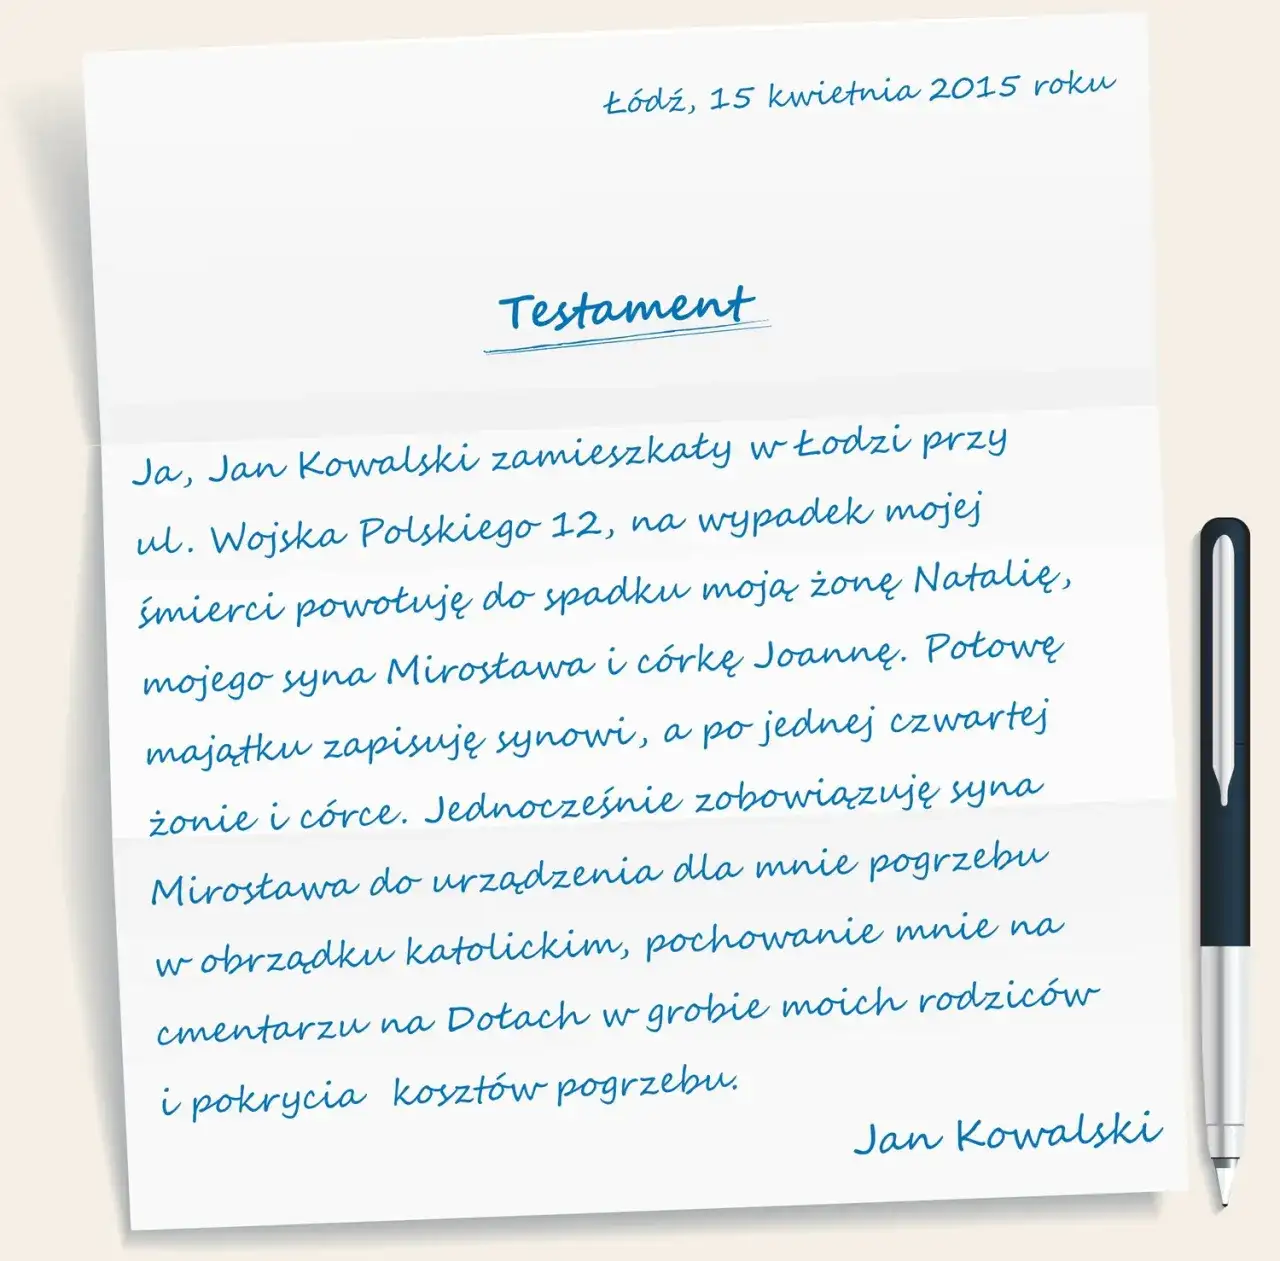 Łódź, 15 kwietnia 2015 roku
Testament
Ja, Jan Kowalski zamieszkały w Łodzi przy
ul. Wojska Polskiego 12, na wypadek mojej
śmierci powołuję do spadku moją żonę Natalię,
mojego syna Mirosława i córkę Joannę. Połowę
majątku zapisuję synowi, a po jednej czwartej
żonie i córce. Jednocześnie zobowiązuję syna
Mirosława do urządzenia dla mnie pogrzebu
w obrządku katolickim, pochowanie mnie na
cmentarzu na Dołach w grobie moich rodziców
i pokrycia kosztów pogrzebu.
Jan Kowalski